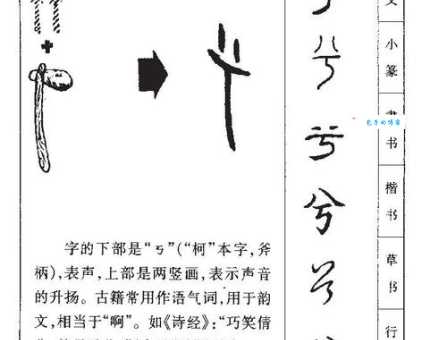 字的下部是“丂”(“柯”本字,斧
柄),表声,上部是两竖画,表示声音
的升扬。古籍常用作语气词,用于韵
文,相当于“啊”。如《诗经》:“巧笑倩
兮
兮
兮
兮
文
小篆
隶书
楷书
草书
行